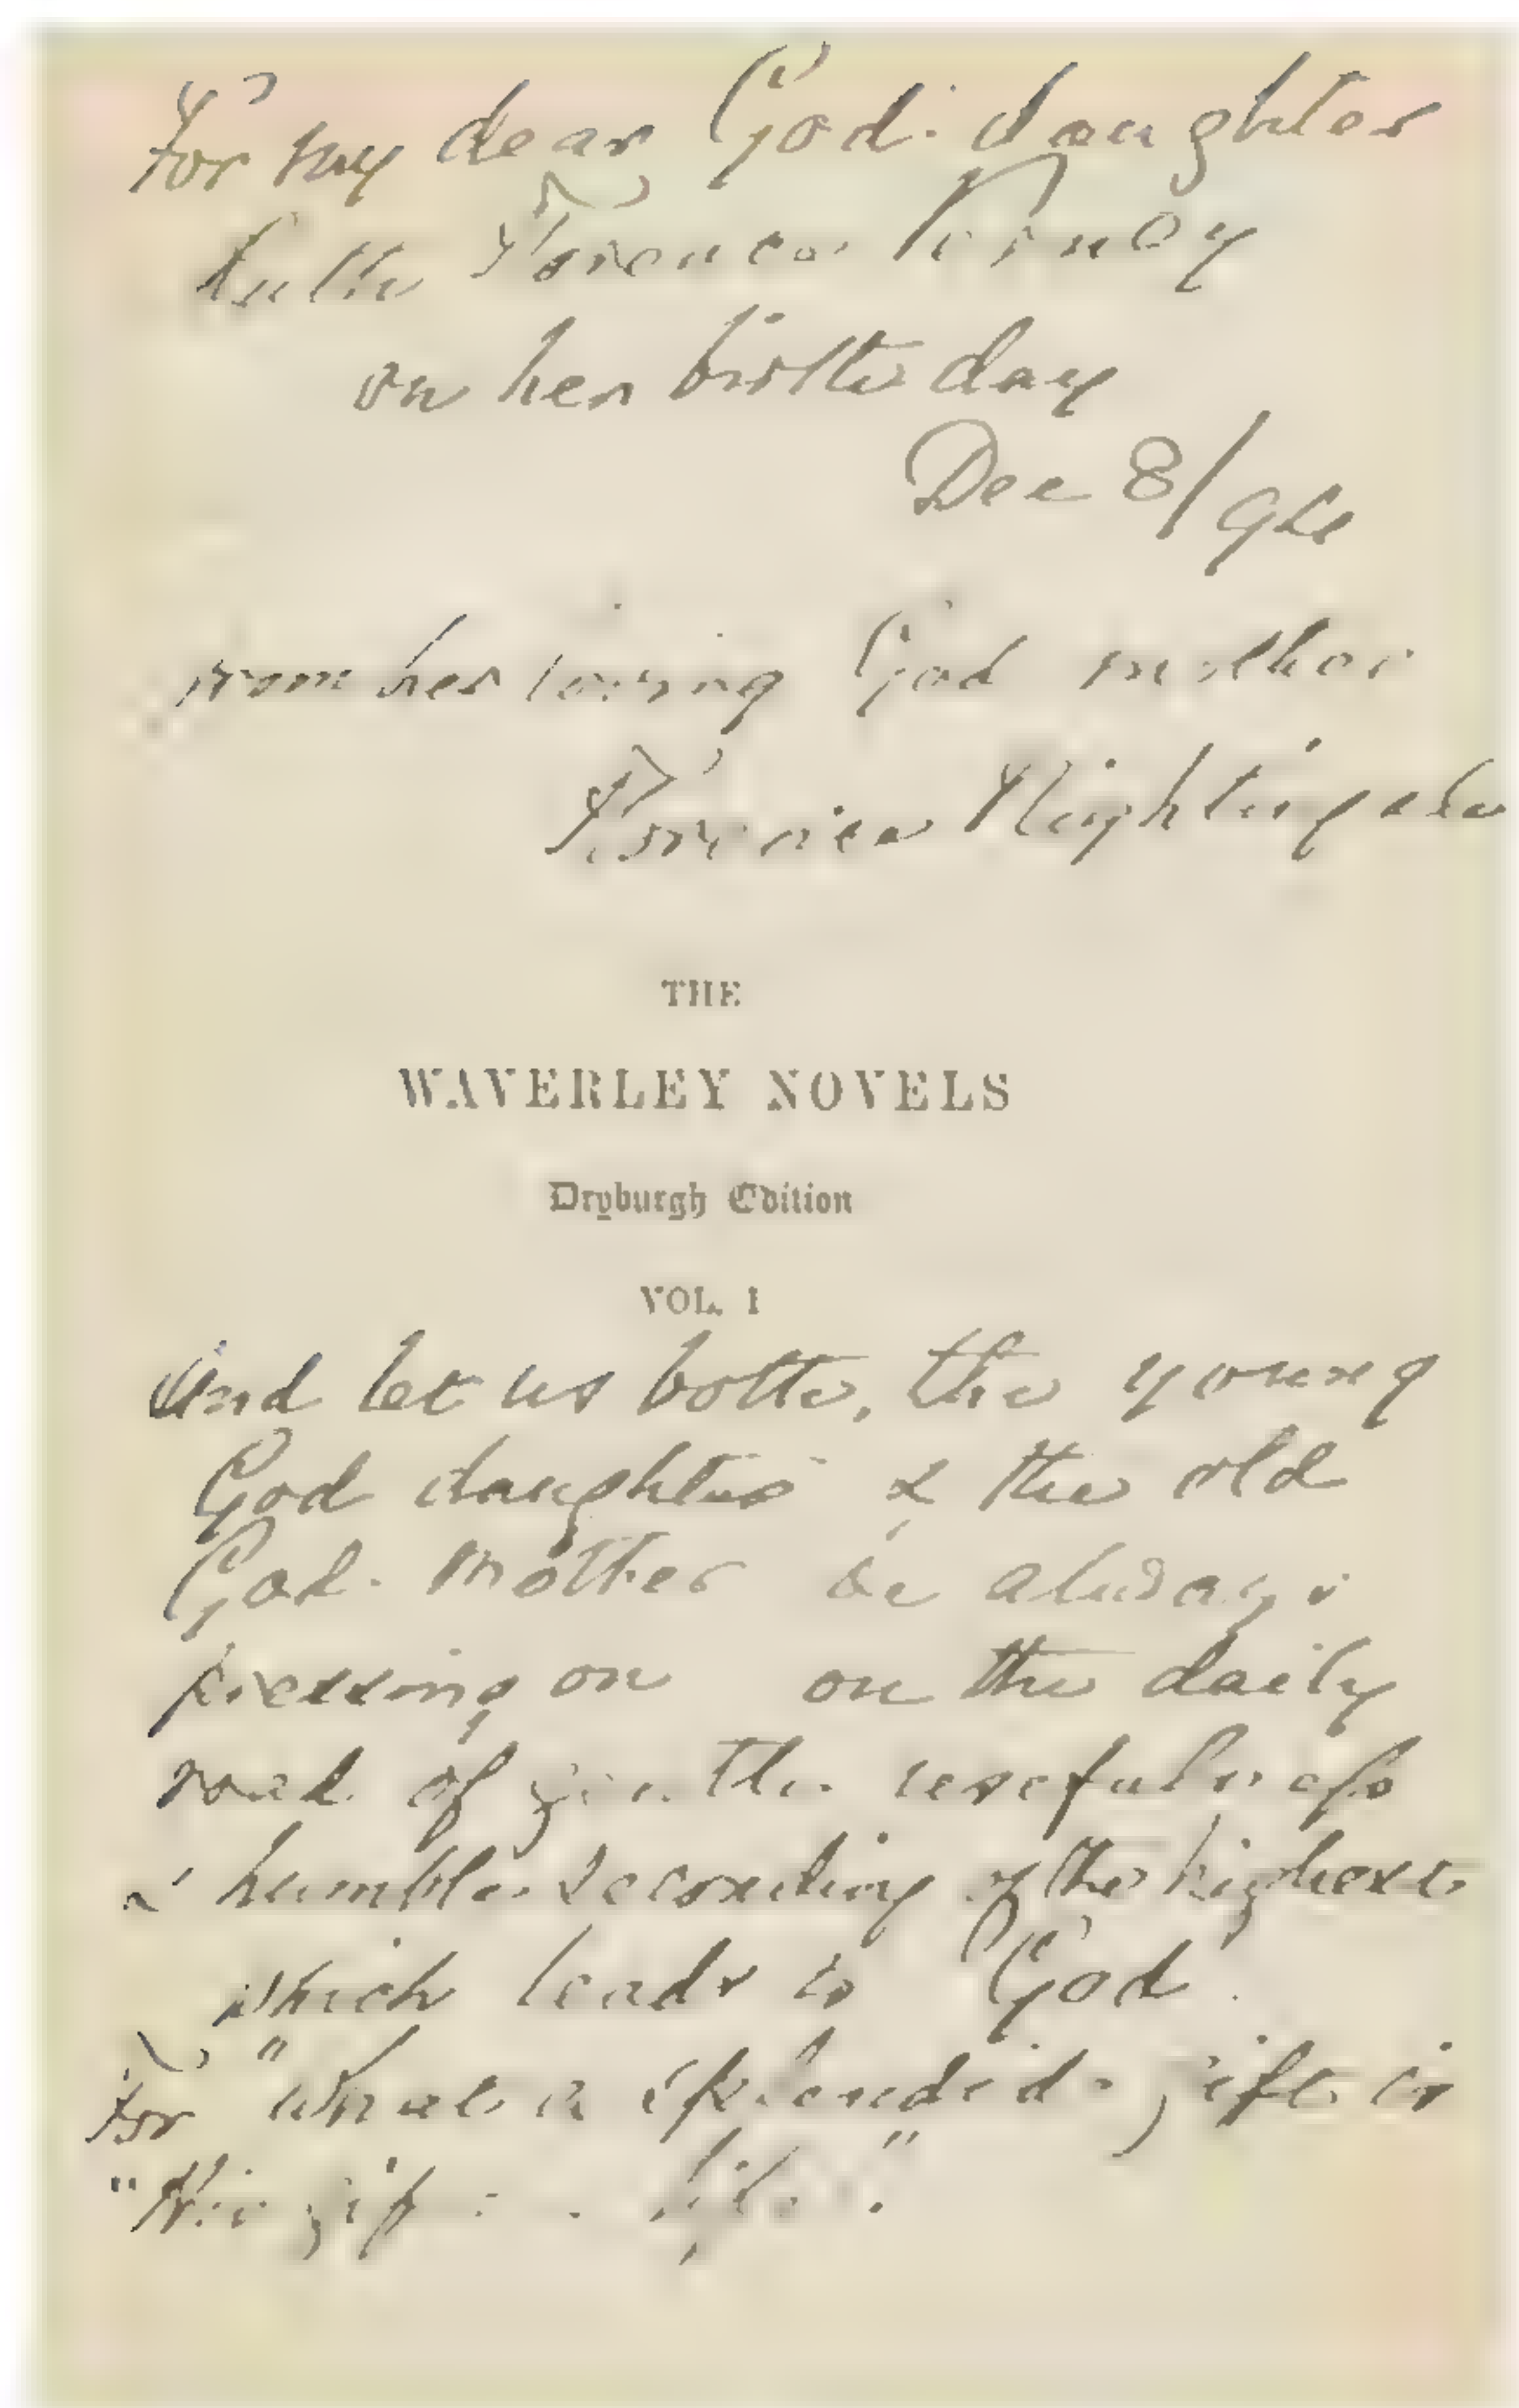 For my dear God-daughter
Ruth Florence
on her birth day
Dec 8/94
from her loving God mother
Florence Nightingale
THE
WAVERLEY NOVELS
Dryburgh Edition
VOL. I
And let us both, the young
God daughter & the old
God-Mother be always
pressing on on the daily
road of gentle usefulness
& humble of the highest
which leads to God.
For "what a splendid gift is
"the gift life."